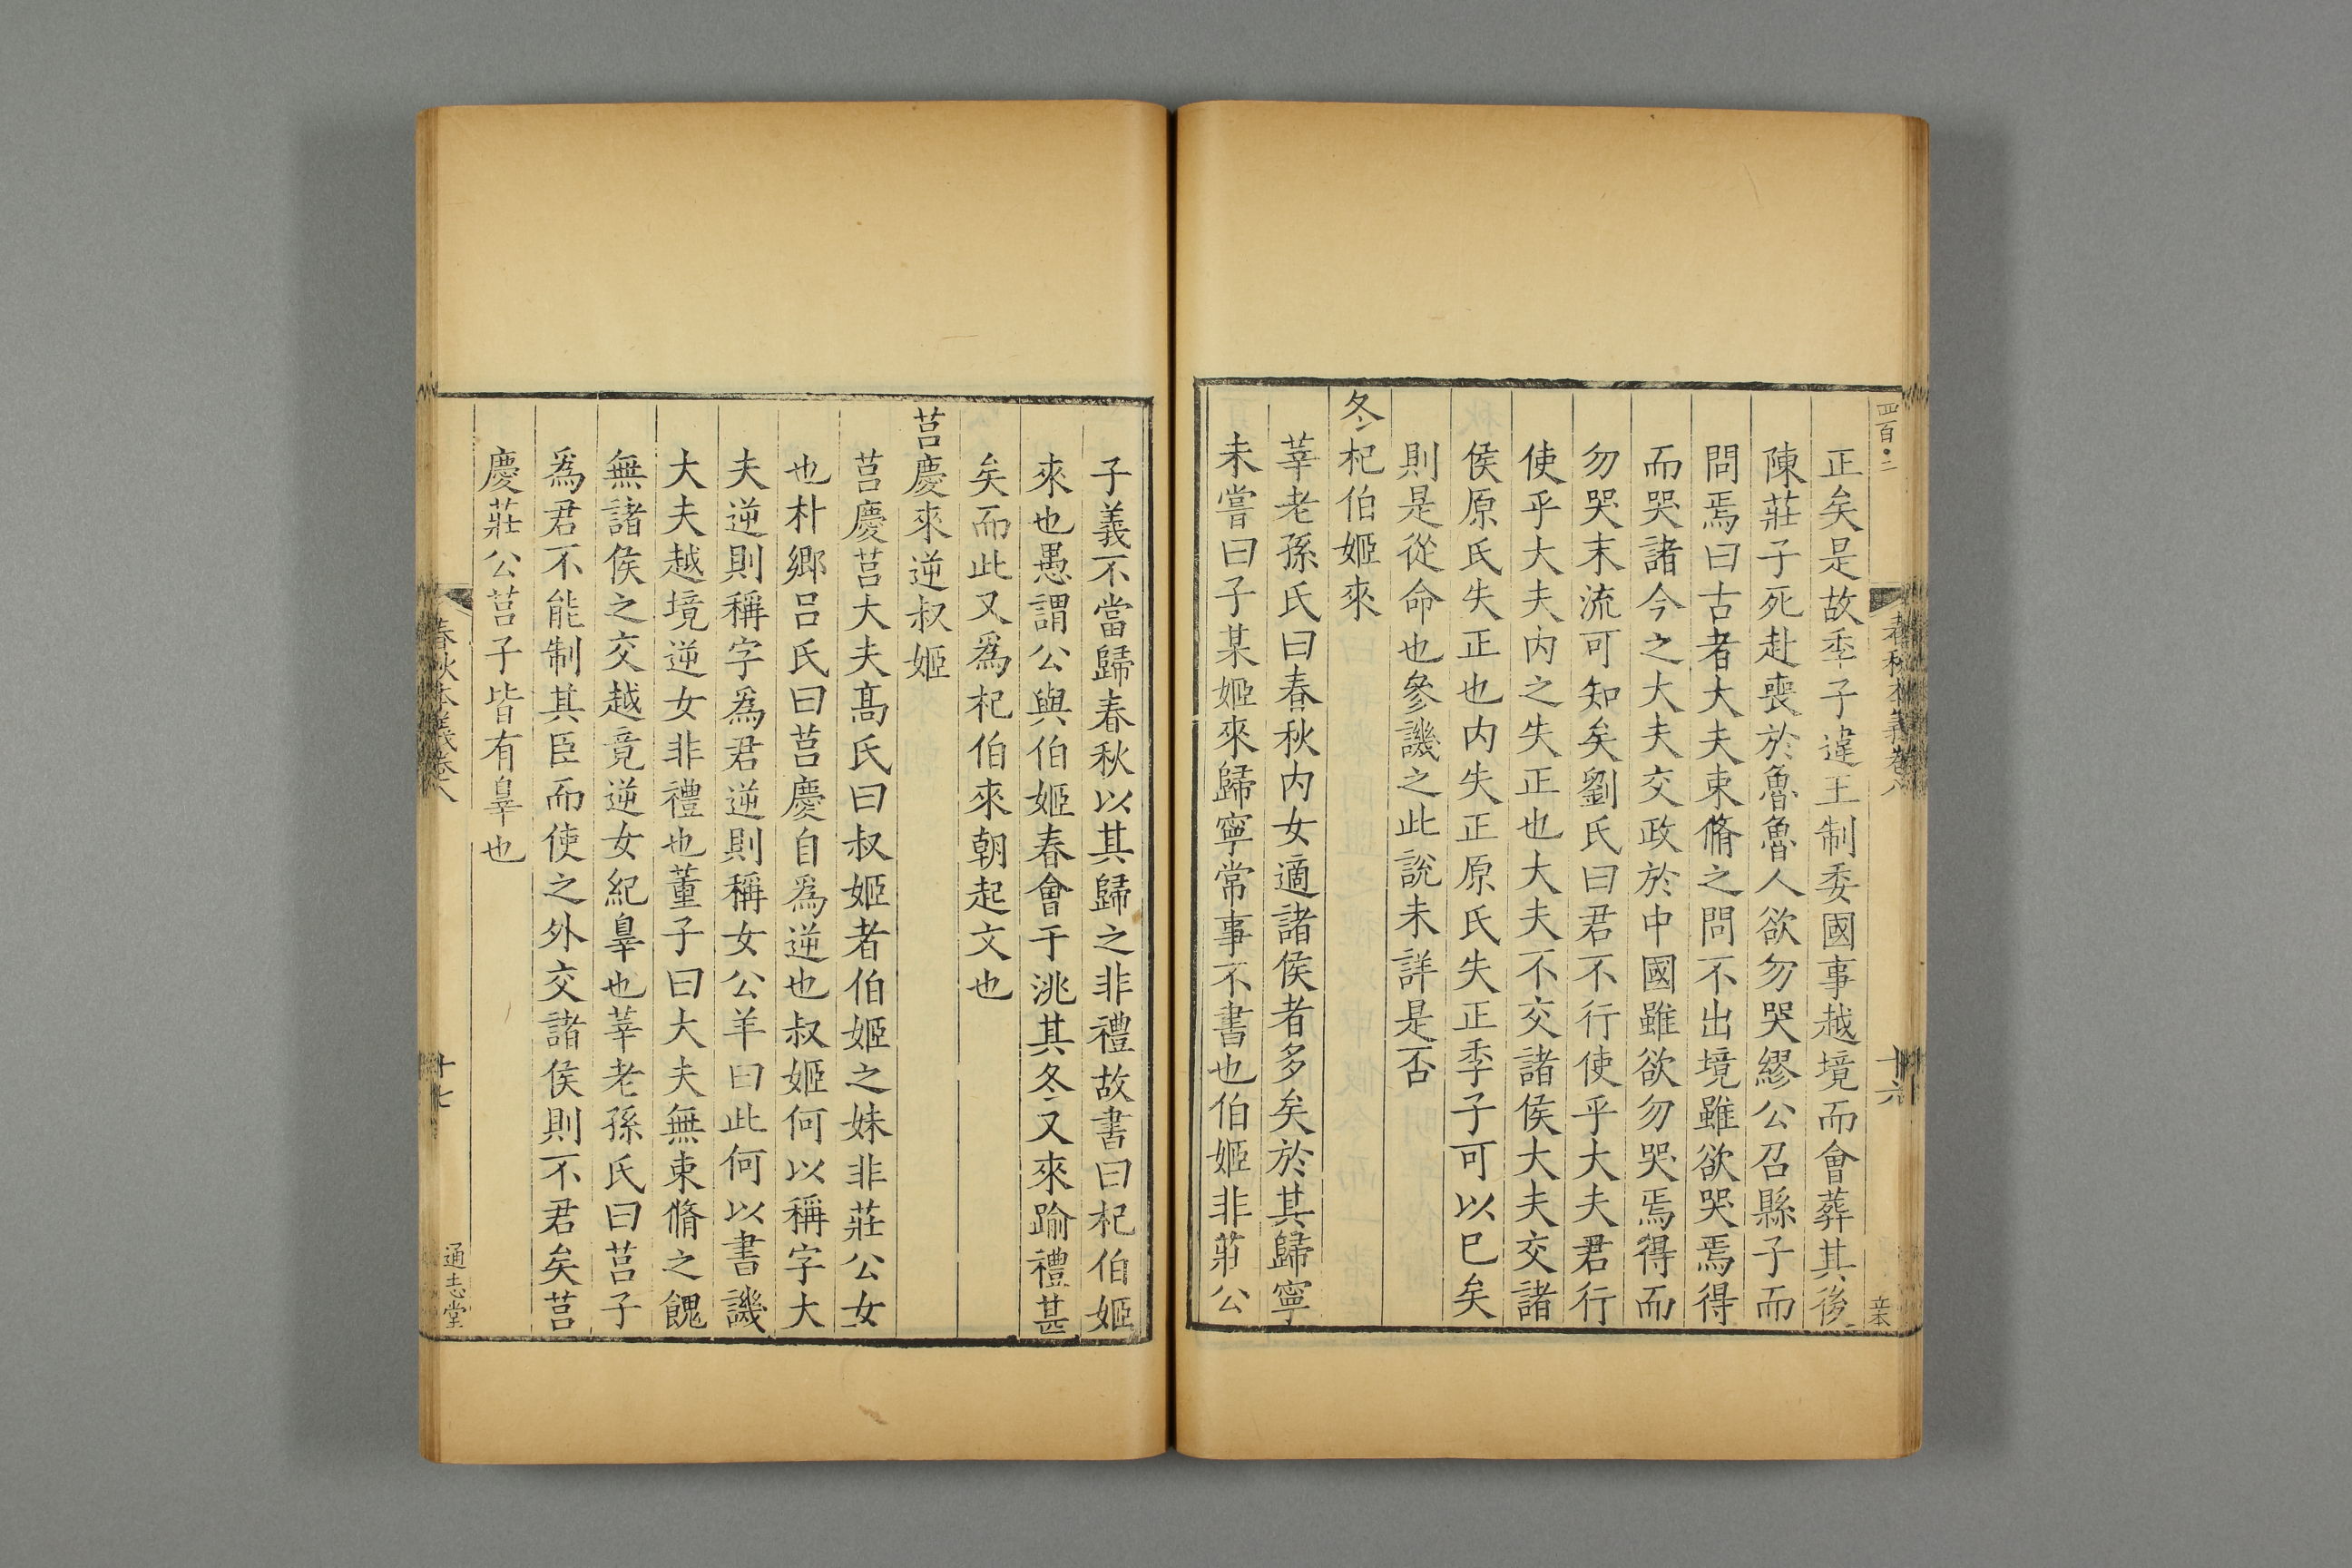 四百二
正矣是故季子違王制委國事越境而會葬其後
陳莊子死赴喪於魯魯人欲勿哭繆公召縣子而
問焉曰古者大夫束脩之問不出境雖欲哭焉得
而哭諸今之大夫交政於中國雖欲勿哭焉得而
勿哭末流可知矣劉氏曰君不行使乎大夫君行
使乎大夫内之失正也大夫不交諸侯大夫交諸
侯原氏失正也内失正原氏失正季子可以已矣
則是從命也參譏之此説未詳是否
冬杞伯姬來
莘老孫氏曰春秋内女適諸侯者多矣於其歸寧
未嘗曰子某姬來歸寧常事不書也伯姬非莊公
子義不當歸春秋以其歸之非禮故書曰杞伯姬
來也愚謂公與伯姬春會于洮其冬又來踰禮甚
矣而此又爲杞伯來朝起文也
莒慶來逆叔姬
莒慶莒大夫髙氏曰叔姬者伯姬之妹非莊公女
也朴鄉吕氏曰莒慶自爲逆也叔姬何以稱字大
夫逆則稱字爲君逆則稱女公羊曰此何以書譏
大夫越境逆女非禮也董子曰大夫無束脩之餽
無諸侯之交越竟逆女紀辠也莘老孫氏曰莒子
爲君不能制其臣而使之外交諸侯則不君矣莒
慶莊公莒子皆有辠也
春秋本義卷八
十六
春秋本義卷八
十七
通志堂